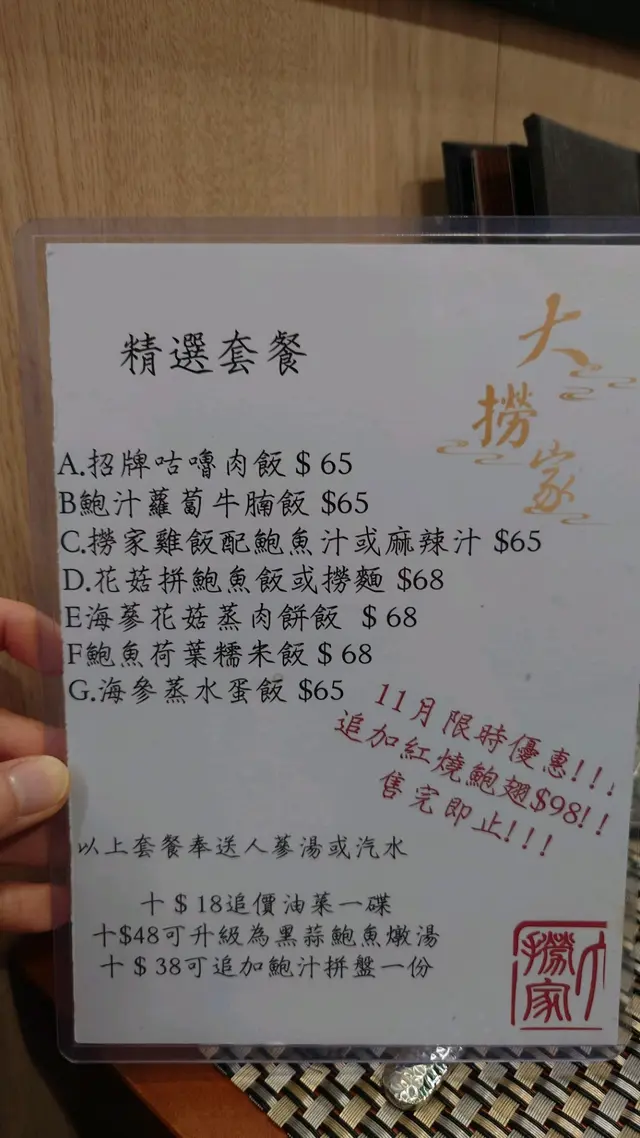 大撈家
精選套餐
A.招牌咕嚕肉飯 $ 65
B鮑汁蘿蔔牛腩飯 $65
C.撈家雞飯配鮑魚汁或麻辣汁 $65
D.花菇拼鮑魚飯或撈麵 $68
E海蔘花菇蒸肉餅飯 $ 68
F鮑魚荷葉糯米飯 $ 68
G.海參蒸水蛋飯 $65
11月限時優惠!!!
追加紅燒鮑翅$98!!
售完即止!!!
以上套餐奉送人蔘湯或汽水
十 $ 18追價油菜一碟
十$48可升級為黑蒜鮑魚燉湯
十 $ 38可追加鮑汁拼盤一份
大撈家